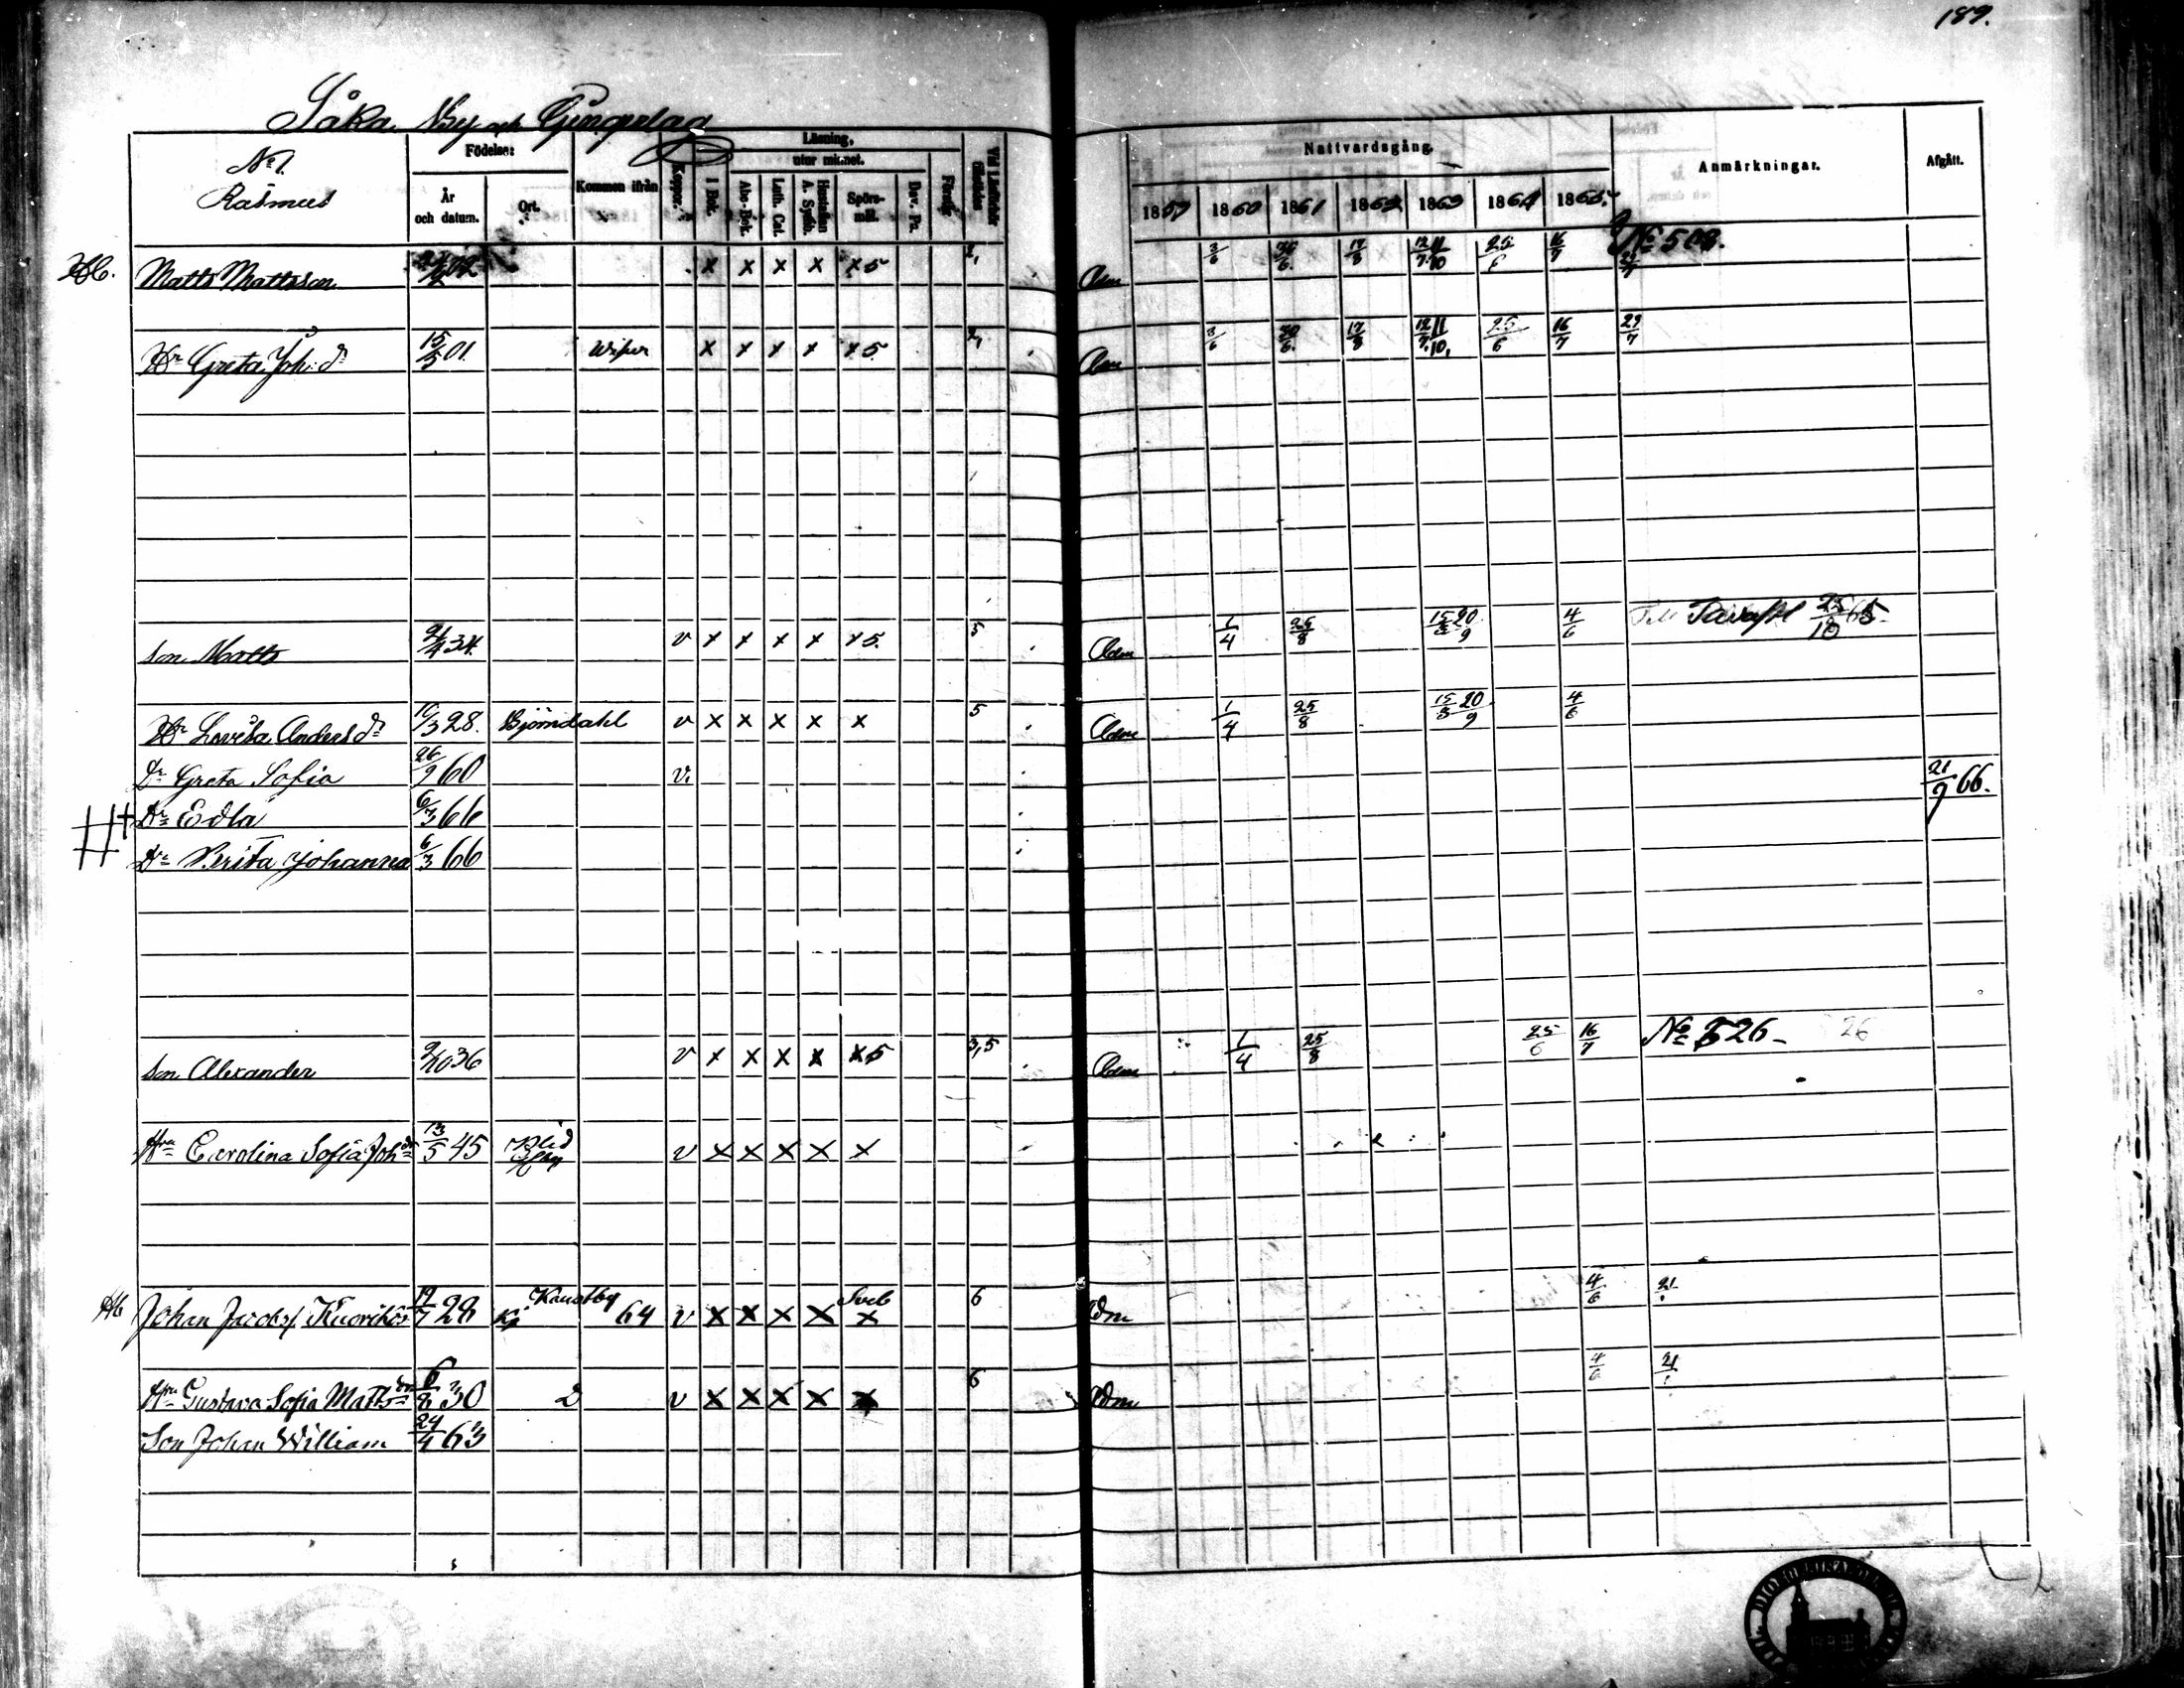 189.
Såka By och Gångslag
No 1.
Rasmus
Födelse:
År och datum.
Ort.
Kommen ifrån
Koppor.
Läsning,
I Bok.
utur minnet.
Abc-Bok.
Luth. Cat.
Hustaflan A. Symb.
Spörs-mål.
Dav. Ps.
Förstår
Vid Läseförhör tillstädes
Nattvardsgång.
1859 1860 1861 1862 1863 1864 1865.
Anmärkningar.
Afgått.
Hb. Matts Mattsson x x x x x5 2, Adm 3/6 30/6. 17/8 12/7 11/10 25/6 16/7 No 503. 29/7
Hu Greta Joh: dr 15/3 01. x x x x x5. 2, Adm 3/6 30/6. 17/8 12/7. 11/10, 25/6 16/7 29/7
Son Matts 9/4 34. v x x x x x5. 5 Adm 1/4 25/8 15/8 20/9 4/6 Till 25/10 65
Hu Lovisa Anders dr 10/3 28. Björndahl v x x x x x 5 Adm 1/4 25/8 15/8 20/9 4/6
Dr Greta Sofia 26/9 60 v.
+ Dr Edla 6/3 66 21/9 66.
Dr Brita Johanna 6/3 66
Son Alexander 9/10 36 v x x x x x5 3,5 Adm 1/4 25/8 25/6 16/7 No 526 - 26
Hru Carolina Sofia Joh dr 13/5 45 v x x x x x
Hb Johan Jacobss. 19/7 28 Kaustby 64 v x x x x x 6 Adm 4/6 21/
Hru Gustava Sofia Matts dr 6/8 30 D v x x x x x 6 Adm 4/6 21/
Son Johan William 24/4 63